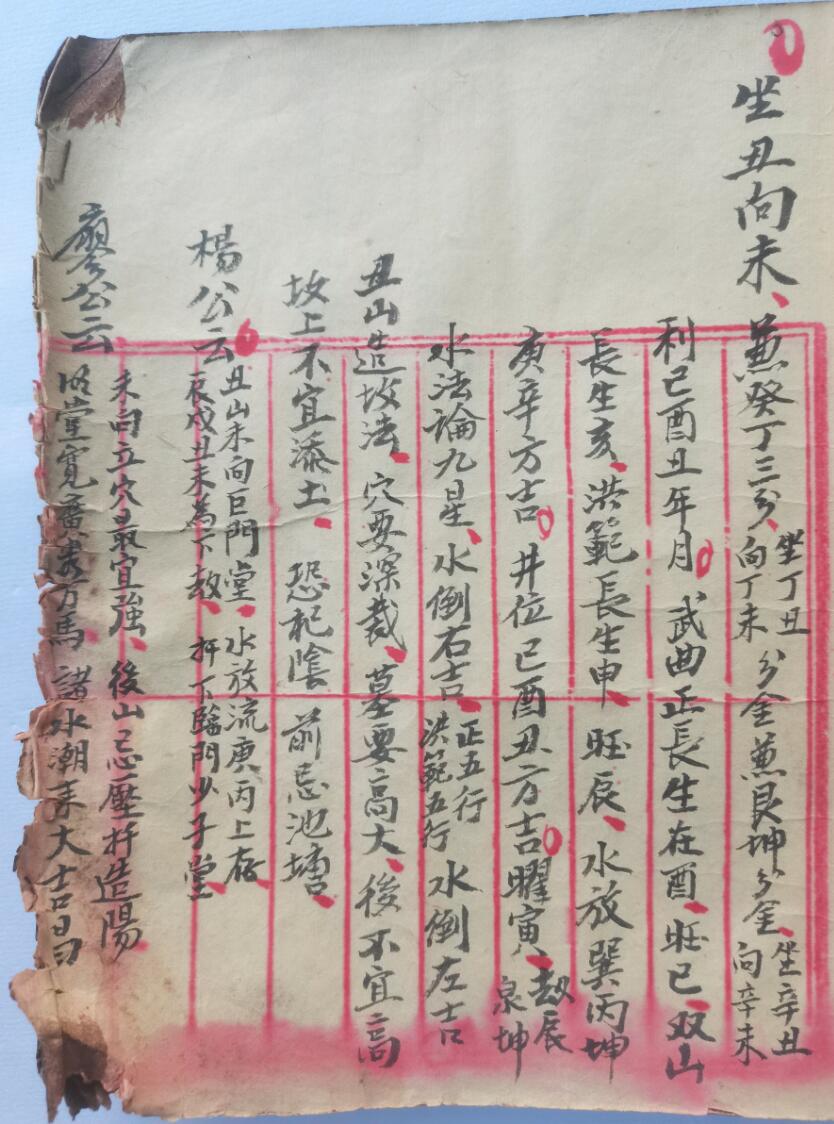 坐丑向未、兼癸丁三分、坐丁丑向丁未分金兼艮坤分金、坐辛丑向辛未
利巳酉丑年月。武曲正長生在酉、旺巳、双山
長生亥、洪範長生申、旺辰、水放巽丙坤
庚辛方吉。井位巳酉丑方吉。曜寅、劫辰泉坤
水法論九星、水倒右吉、正五行洪範五行水倒左吉
丑山造坟法、穴要深裁、墓要高大、後不宜高
坟上不宜添土、恐犯陰前忌池塘、
楊公云丑山未向巨門堂、水放流庚丙上存、
辰戍丑未為下劫、扦下臨門少子堂、
廖公云未向立穴最宜強、後山忌壓扦造陽、
明堂寬畜萬馬、諸水潮来大吉昌